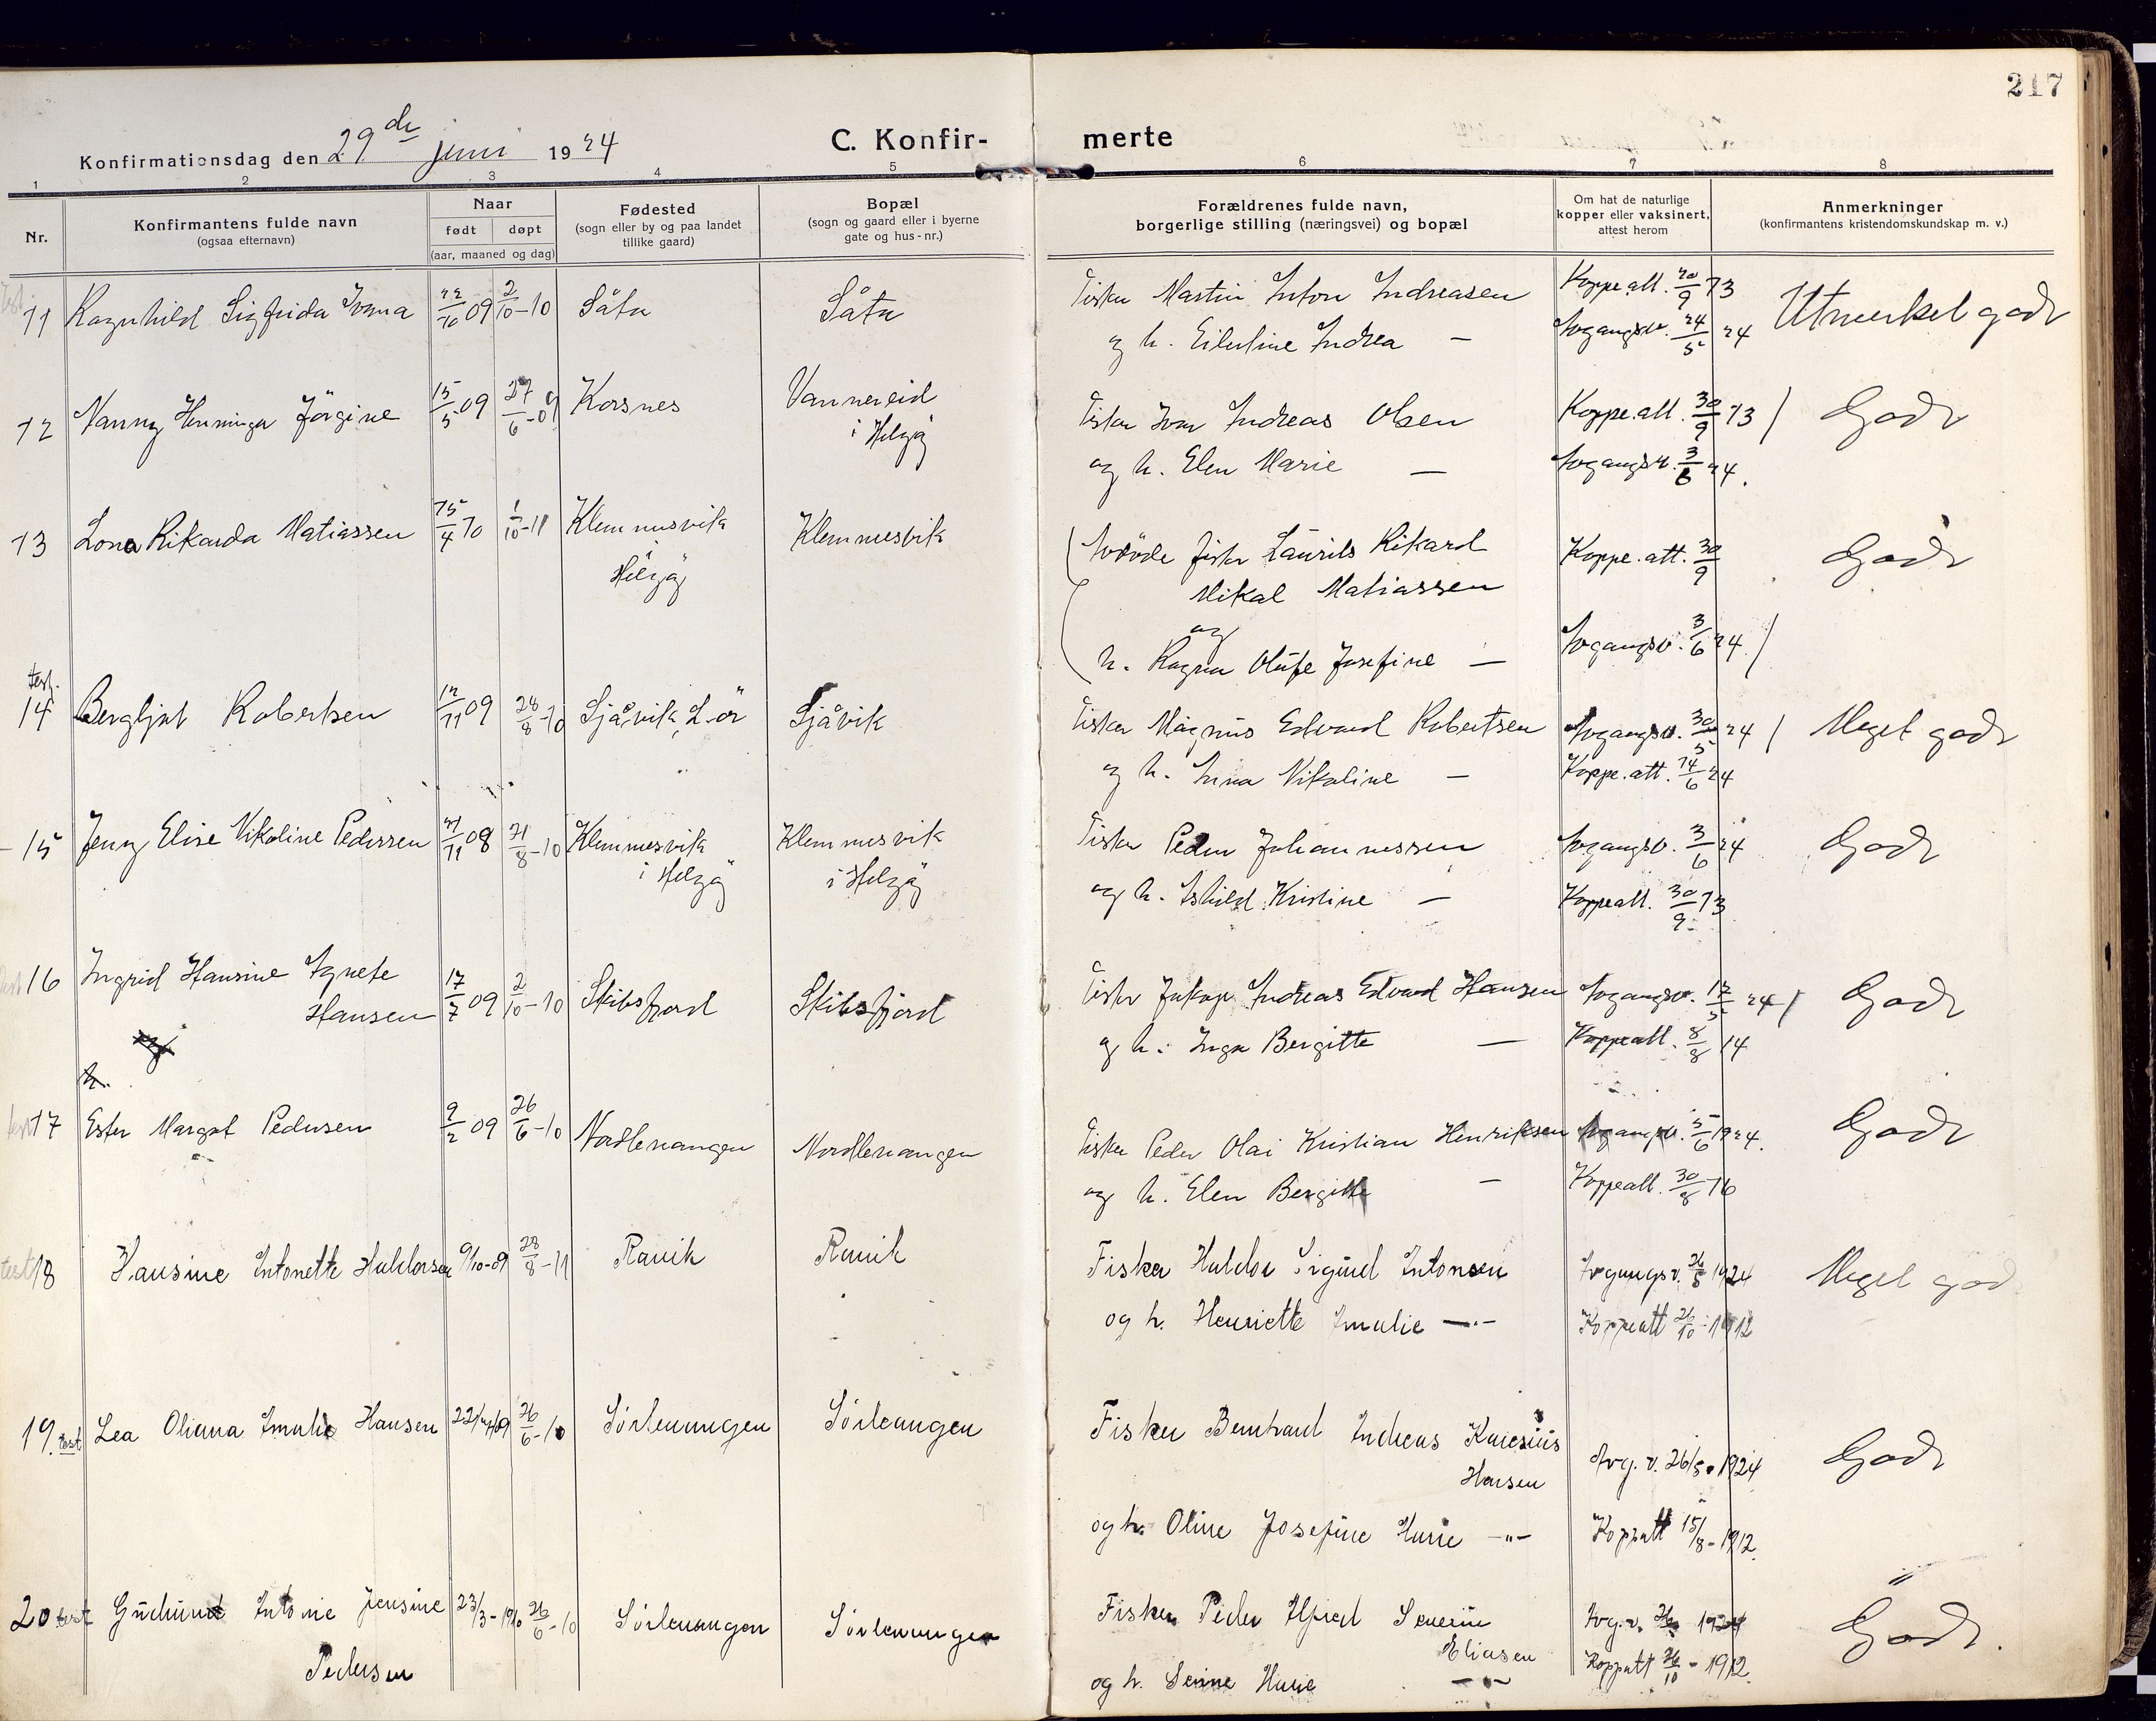 217
Konfirmationsdag den 29de juni 1924
C. Konfir-
merte
1 2 3 4 5 6 7 8
Nr.
Konfirmantens fulde navn
(ogsaa efternavn)
Naar
født døpt
(aar, maaned og dag)
Fødested
(sogn eller by og paa landet
tillike gaard)
Bopæl
(sogn og gaard eller i byerne
gate og hus-nr.)
Forældrenes fulde navn,
borgerlige stilling (næringsvei) og bopæl
Om hat de naturlige
kopper eller vaksinert,
attest herom
Anmerkninger
(konfirmantens kristendomskundskap m. v.)
11 Ragnhild Sigfrida Ivana 22/10 09 2/10-10 Såta Såta Fisker Martin Anton Andreasen Koppeatt. 20/9 13 Utmerket godt
og h. Eilertine Andrea — Avgangsv. 24/5 24
12 Nanny Henninga Jörgine 15/5 09 27/6-09 Korsnes Vannereid Fisker Ivar Andreas Olsen Koppe.att. 30/9 13 / Godt
i Helgöy og h. Elen Marie — Avgangsv. 3/6 24.
13 Lona Rikarda Matiassen 15/4 10 1/10-11 Klemmesvik Klemmesvik Avdöde fisker Laurits Rikard Koppe.att. 30/9 Godt
Helgöy Mikal Matiassen
og
h. Ragna Olufe Josefine — Avgangsv. 3/6 24 /
test.
14 Bergljot Robertsen 12/11 09 28/8-10 Sjåvik, L-ör Sjåvik Fisker Magnus Edvard Robertsen Avgangsv. 30/5 24 / Meget godt
og h. Anna Nikoline — Koppe.att. 14/6 24
15 Jenny Elise Nikoline Pedersen 21/11 08 21/8-10 Klemmesvik Klemmesvik Fisker Peder Johannessen Avgangsv. 3/6 24 Godt
i Helgöy i Helgöy og h. Ashild Kristine — Koppeatt. 30/9 13
test 16 Ingrid Hansine Agnete
Hansen 17/7 09 2/10-10 Skibsfjord Skibsfjord Fisker Jakop Andreas Edvard Hansen Avgangsv. 17/5 24 / Godt
og
h.
og h. Inga Bergitte — Koppeatt. 8/8 14
test 17 Ester Margot Pedersen 9/2 09 26/6-10 Nordlenangen Nordlenangen Fisker Peder Olai Kristian Henriksen Avgangsv. 5/6 1924. Godt
og h. Elen Bergitte — Koppeatt. 30/8 16
test 18 Hansine Antonette Haldorsen 9/10-09 28/8-11 Ravik Ravik Fisker Haldor Sigurd Antonsen Avgangsv. 26/5 1924 Meget god
og h. Henriette Amalie —"— Koppeatt 26/10-1912
19. test Lea Oliana Amalie Hansen 22/4/09 26/6-10 Sörlenangen Sörlenangen Fisker Bernhard Andreas
Hansen Avg. v. 26/5.1924 Godt
og h. Oline Josefine Marie —"— Koppatt 15/8-1912.
20 test Gudrund Antonie Jensine 23/3-1910 26/6-10 Sörlenangen Sörlenangen Fisker Peder Alfred Severin Avg.v. 1924 Godt.
Pedersen Eliasen Koppatt 26/10-1912
og h. Marie —"—